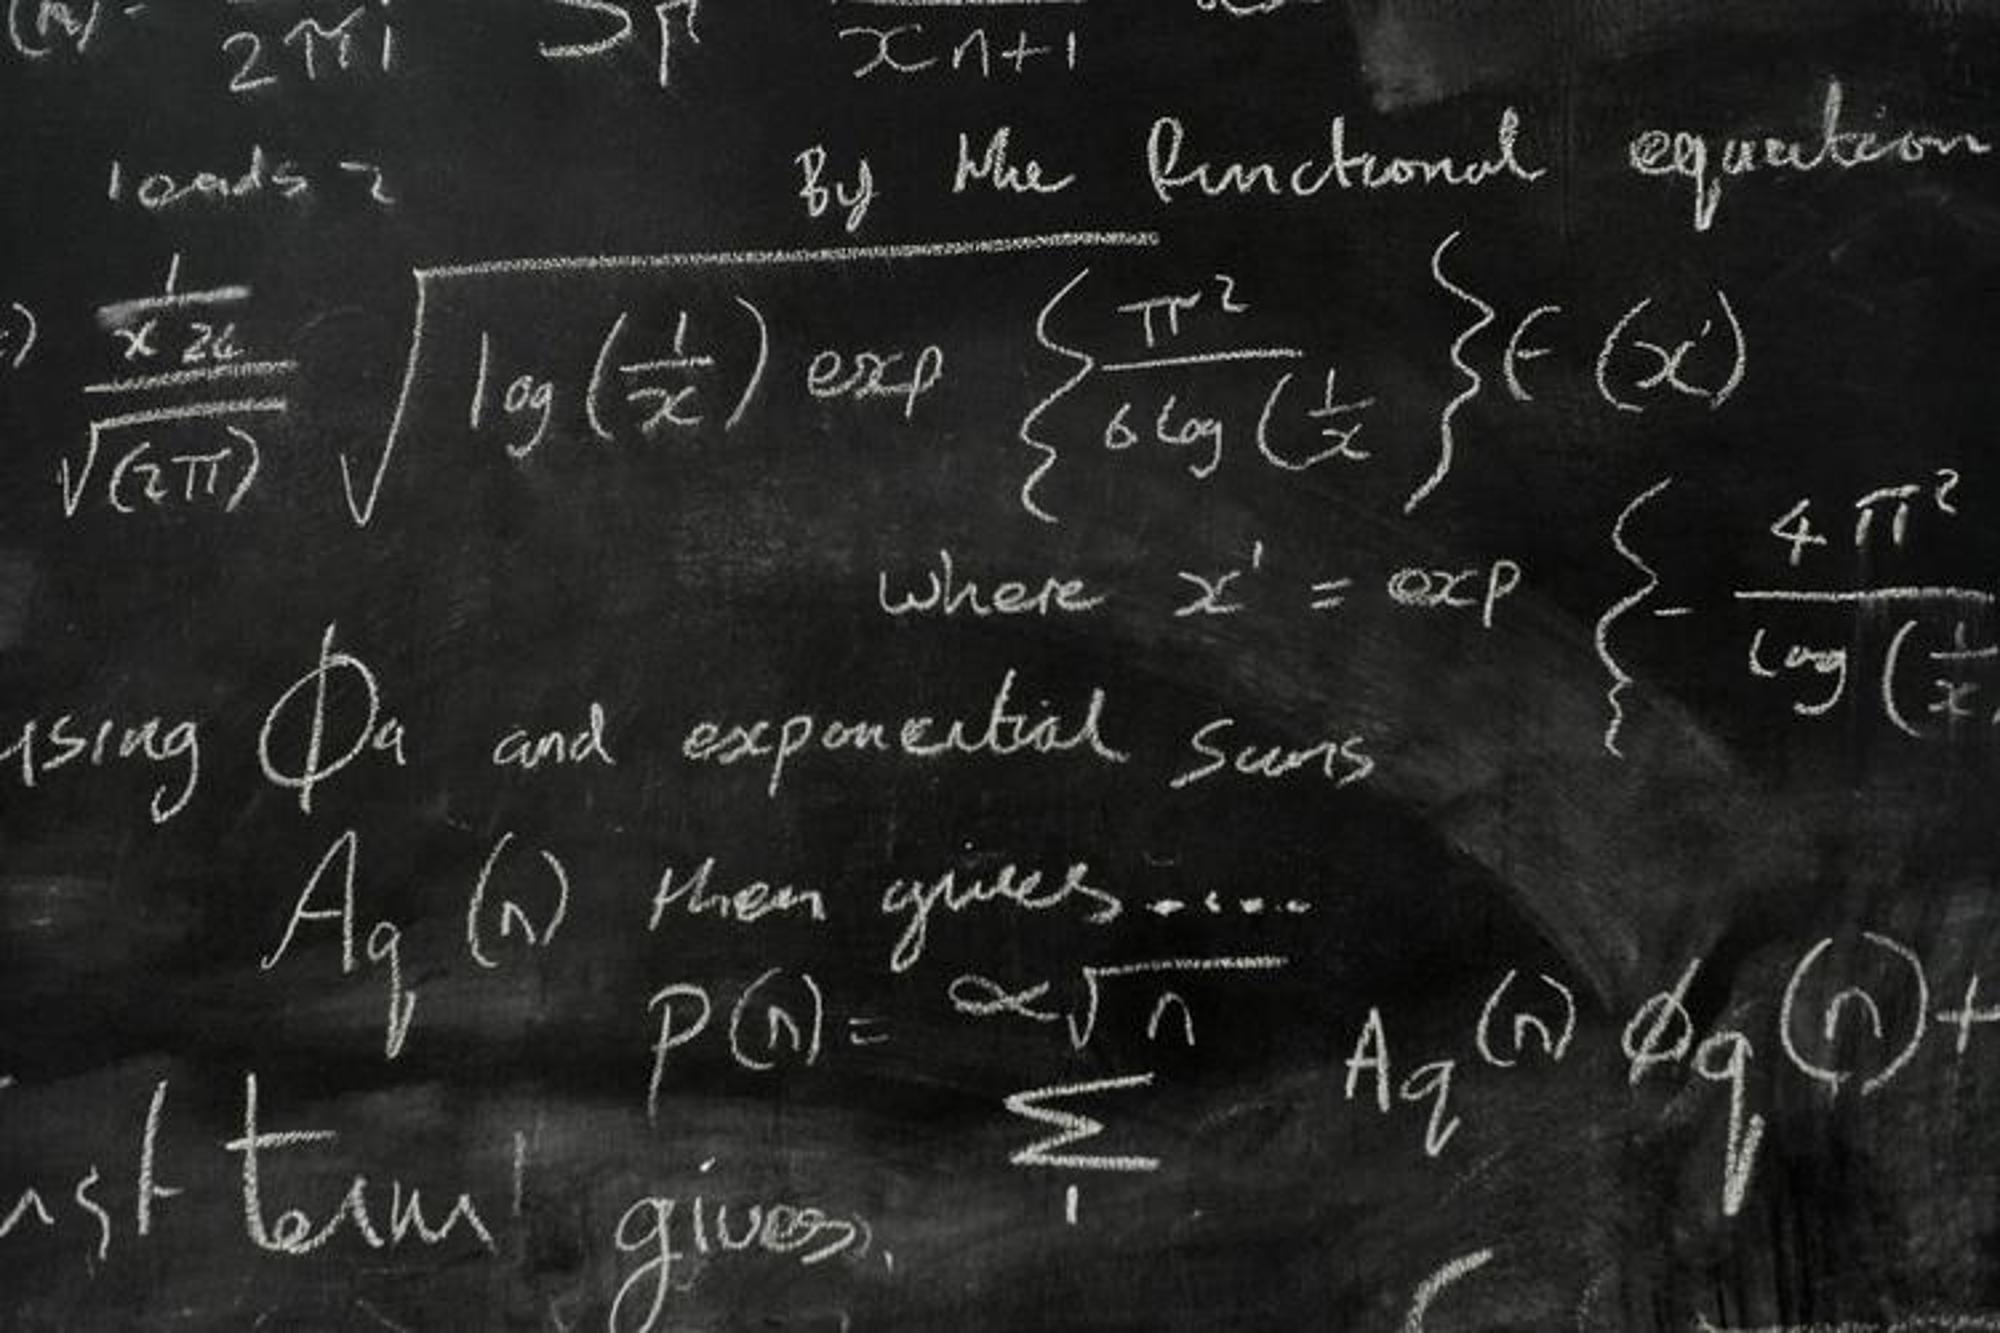 (n) = 1/2πi ∫Γ /xn+1
By the functional equation
1/x24 / √(2π) √log(1/x) exp {π²/6log(1/x} F(x')
where x' = exp {-4π²/log(1/x
using Φq and exponential sums
Aq(n) then gives.....
P(n)= ∝√n Σ 1 Aq(n) ϕq(n)+
term' gives,